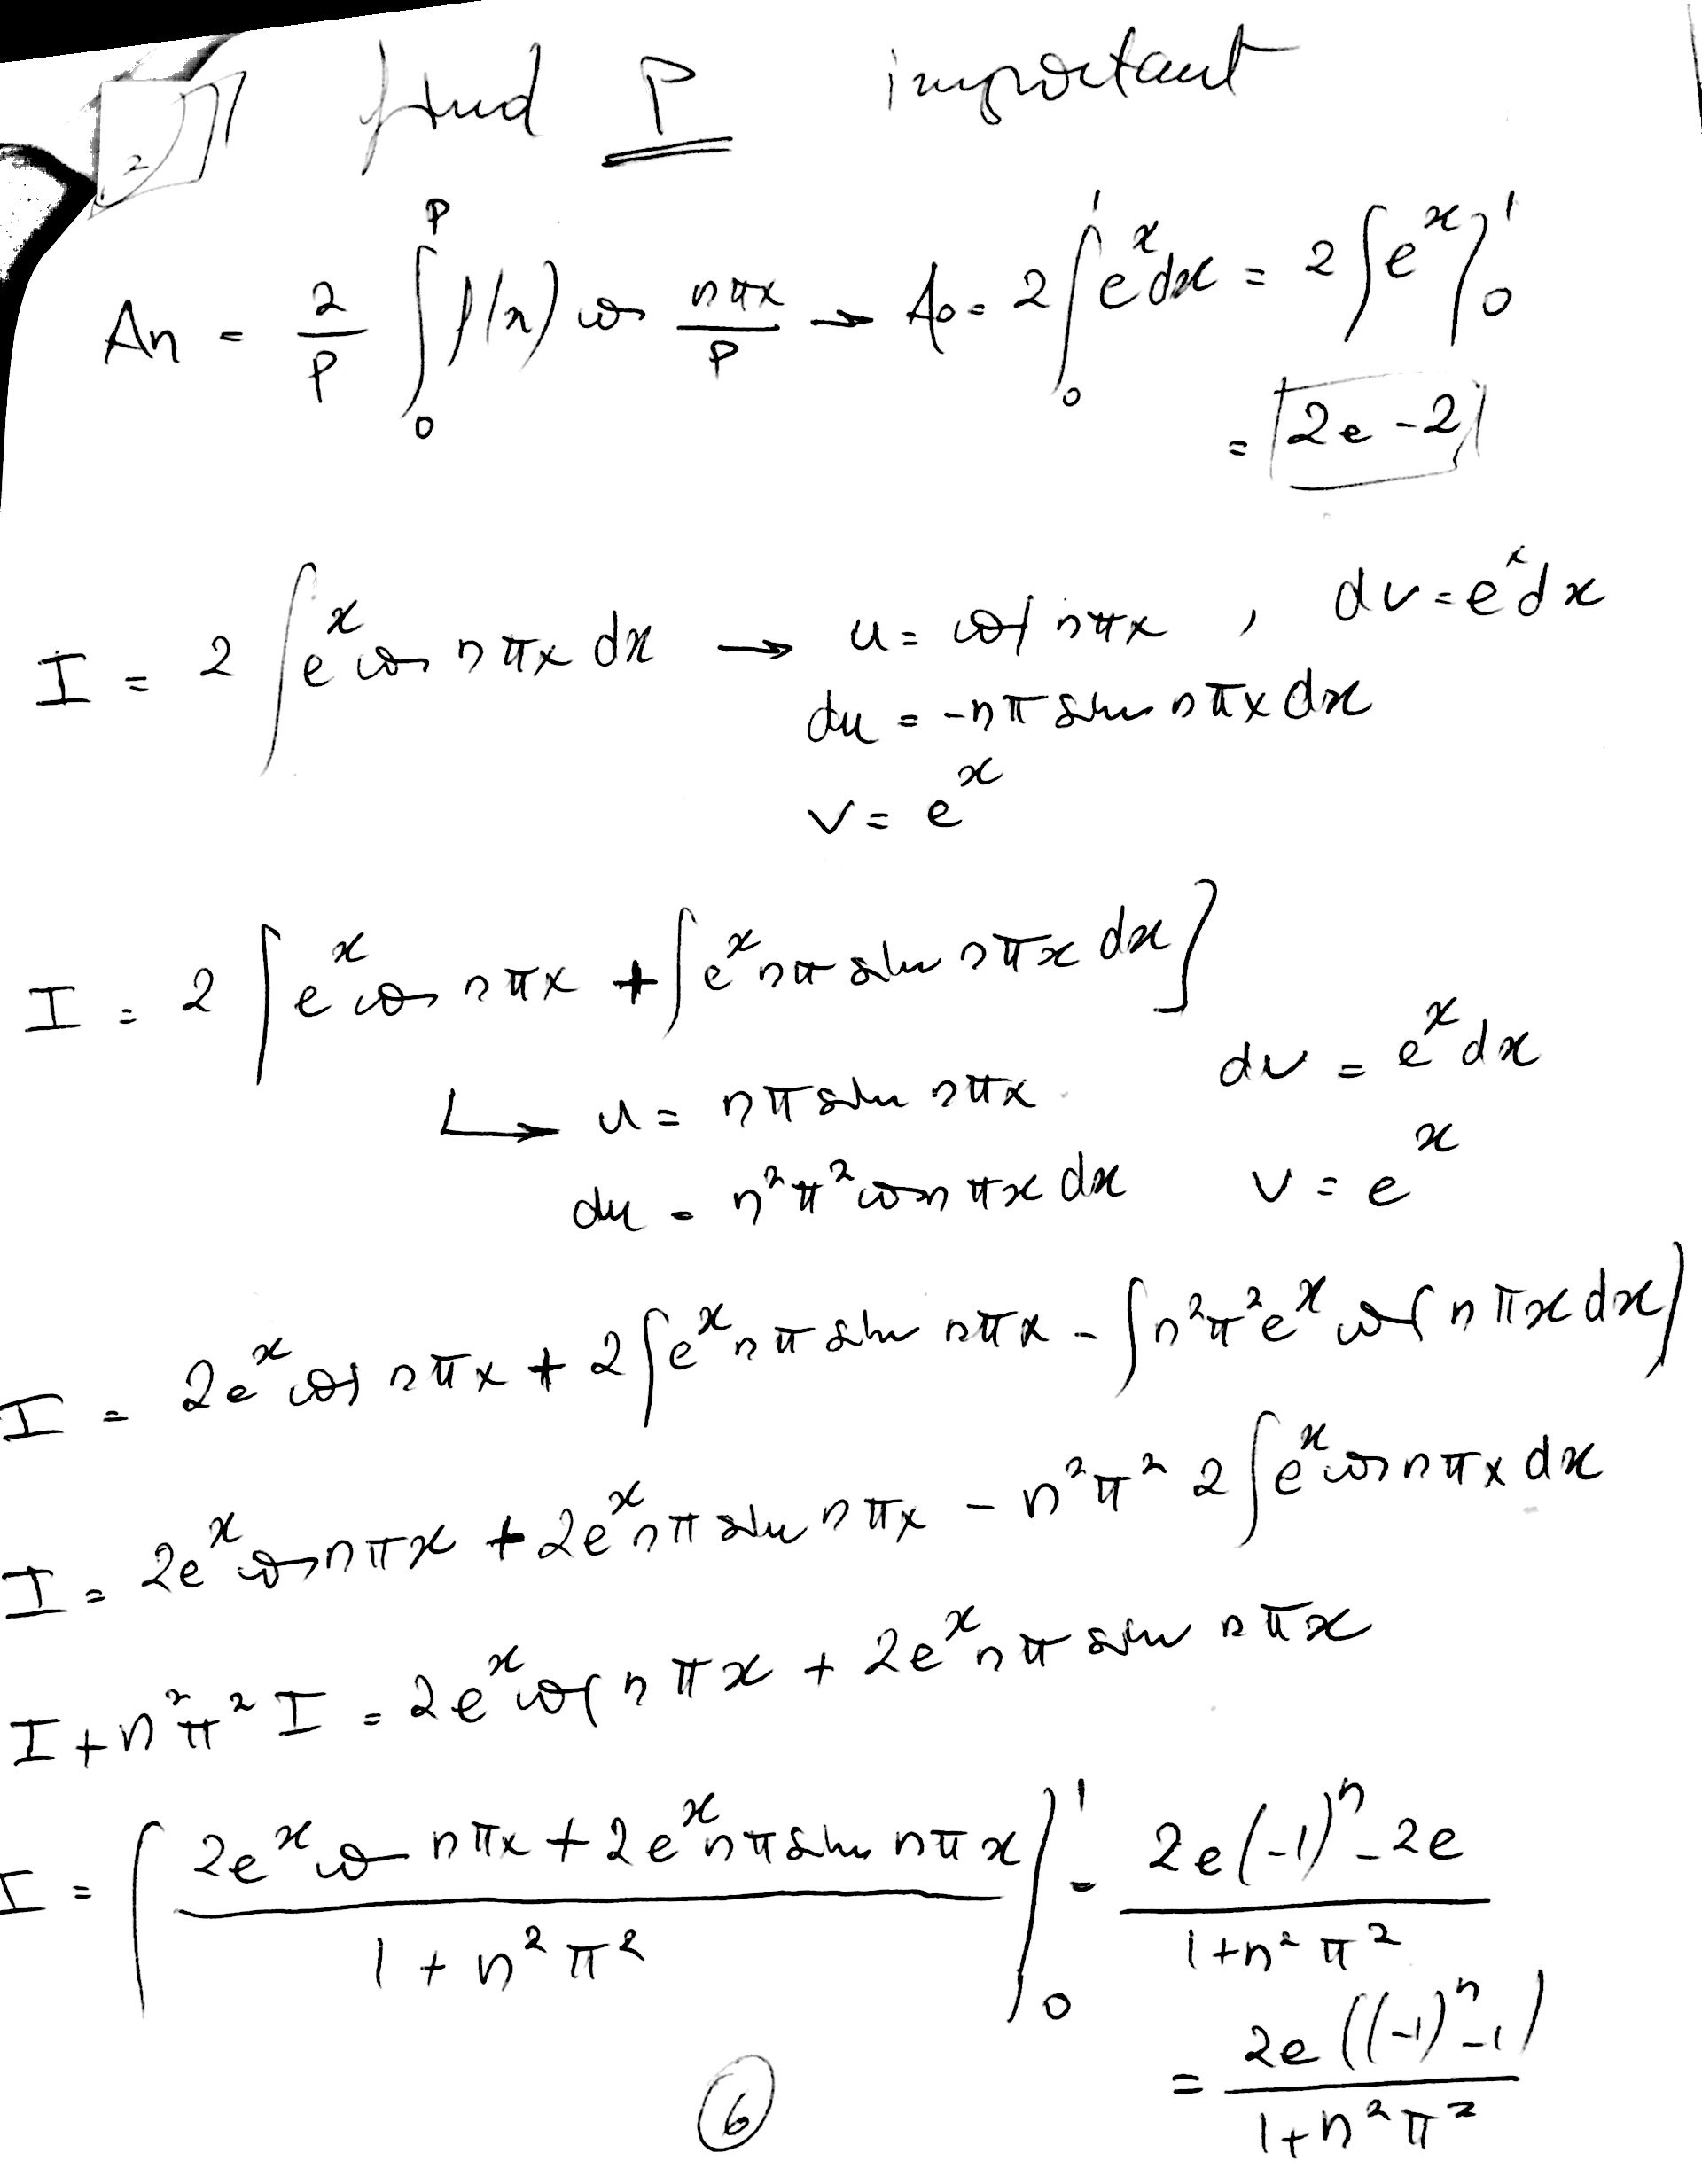 2
find P important
An = 2/P ∫₀ᴾ f(x) cos nπx/P → A₀ = 2 ∫₀¹ eˣdx = 2[eˣ]₀¹
= 2e - 2
I = 2 ∫eˣ cos nπx dx → u = cos nπx , dv = eˣdx
du = -nπ sin nπx dx
v = eˣ
I = 2 [eˣ cos nπx + ∫eˣ nπ sin nπx dx]
↳ u = nπ sin nπx dv = eˣdx
du = n²π² cos nπx dx v = eˣ
I = 2eˣ cos nπx + 2[eˣ nπ sin nπx - ∫n²π²eˣ cos nπx dx]
I = 2eˣ cos nπx + 2eˣ nπ sin nπx - n²π² 2∫eˣ cos nπx dx
I + n²π² I = 2eˣ cos nπx + 2eˣ nπ sin nπx
I = [(2eˣ cos nπx + 2eˣ nπ sin nπx)/(1 + n²π²)]₀¹ = (2e(-1)ⁿ - 2e)/(1+n²π²)
= 2e((-1)ⁿ-1)/(1+n²π²)
6